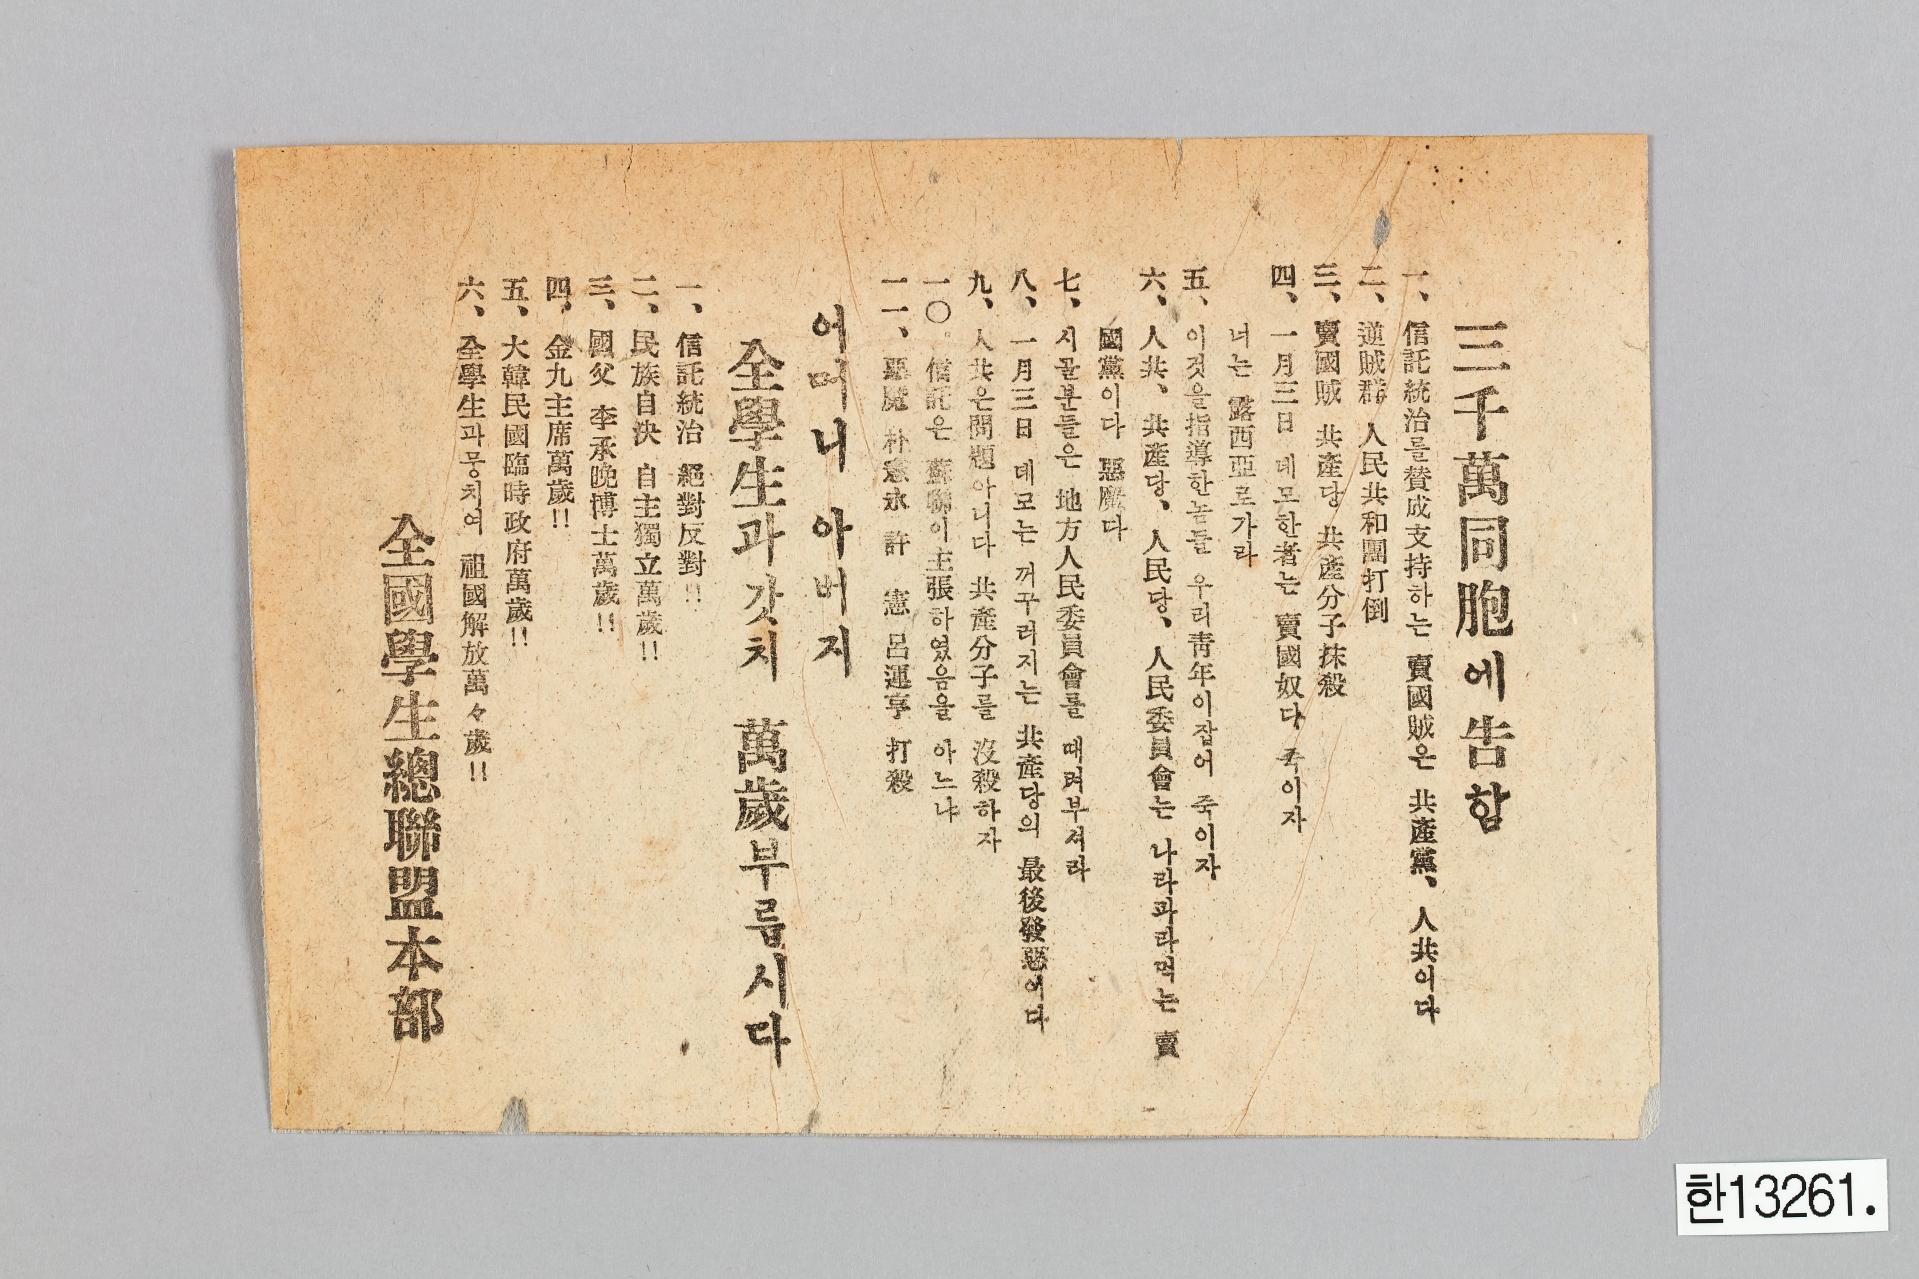 三千萬同胞에告함
一、信託統治를贊成支持하는 賣國賊은 共產黨、人共이다
二、逆賊群 人民共和團打倒
三、賣國賊 共產당 共產分子抹殺
四、一月三日 데모한者는 賣國奴다 죽이자
너는 露西亞로가라
五、이것을指導한놈들 우리靑年이잡어 죽이자
六、人共、共產당、人民당、人民委員會는 나라파라먹는 賣
國黨이다 惡魔다
七、시골분들은 地方人民委員會를 때려부셔라
八、一月三日 데모는 꺼꾸러지는 共產당의 最後發惡이다
九、人共은問題아니다 共產分子를 沒殺하자
一〇、信託은 蘇聯이主張하였음을 아느냐
一一、惡魔 朴憲永 許 憲 呂運亨 打殺
어머니아버지
全學生과갓치 萬歲부릅시다
一、信託統治 絕對反對!!
二、民族自決 自主獨立萬歲!!
三、國父 李承晩博士萬歲!!
四、金九主席萬歲!!
五、大韓民國臨時政府萬歲!!
六、全學生과뭉치여 祖國解放萬々歲!!
全國學生總聯盟本部
한13261.